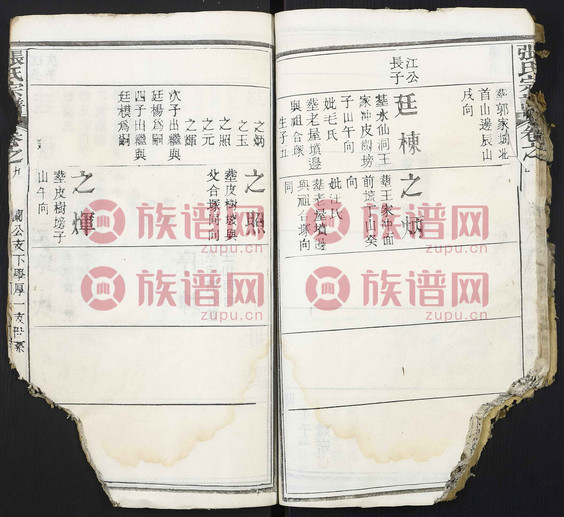 張氏宗譜
葬郭家坳北
首山邊辰山
戌向
江公
長子
廷棟
葬水仙洞王
家冲皮樹塝
子山午向
妣毛氏
葬老屋墳邊
與祖合塚
生子五
之炳
之玉
之元
之照
之輝
次子出繼與
廷楊爲嗣
四子出繼與
廷模爲嗣
之炳
葬王家冲面
前
山癸
向
妣汪氏
葬老屋墳邊
與祖合塚向
同
之照
葬皮樹塝與
父合塚同向
之煇
葬皮樹塝子
山午向
張氏宗譜
卷之九
蘭公支下學厚一支世系
族谱网
zupu.cn
族谱网
zupu.cn
族谱网
zupu.cn
族谱网
zupu.cn